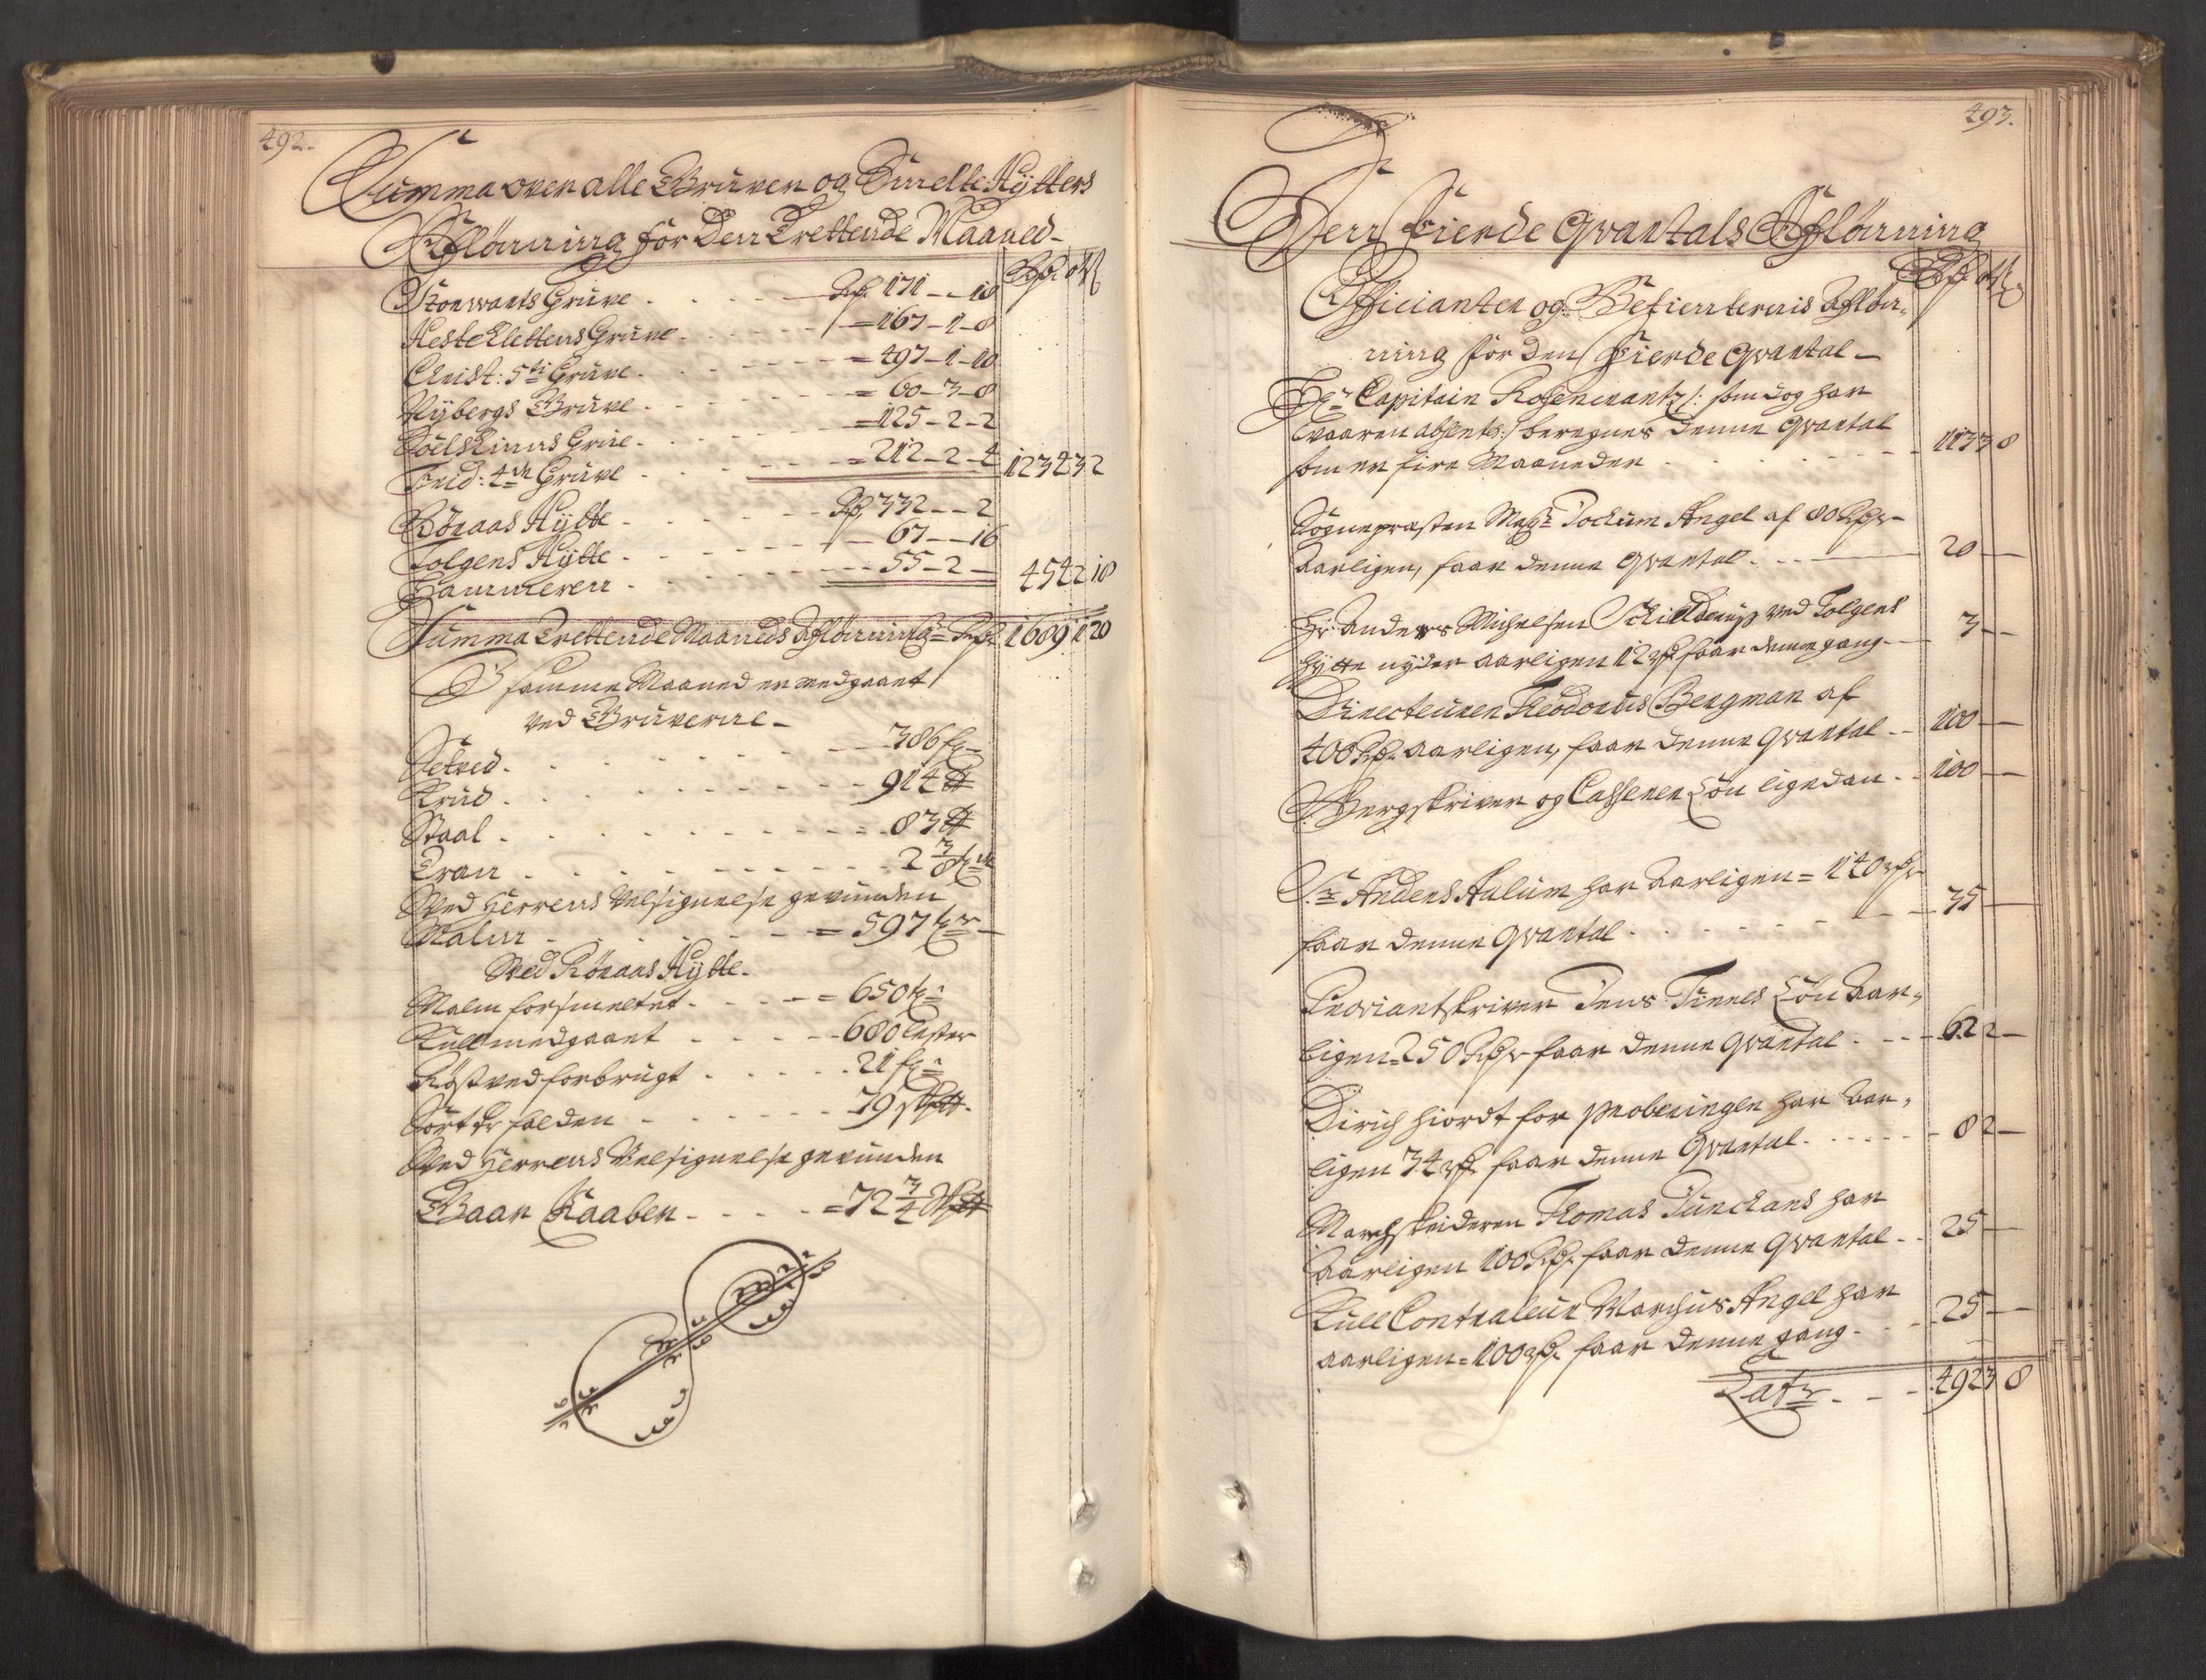 492.
Summa over alle Gruver og Smelte Hytters
Aflönning for den Trettende Maaned-
Rdr. ort ß
Storwarts Gruve . . . . Rdr 171 - - 18
Hesteklettens Gruve . . . . = 167 - 1 - 8
Christ: 5ti Gruve . . . . = 497 - 1 - 10
Nybergs Gruve . . . . = 60 - 3 - 8
= 125 - 2 - 2
Frid: 4ti Gruve . . . . = 212 - 2 - 4 1234 3 2
Röraas Hytte . . . . Rdr 332 - - 2
Tolgens Hytte . . . . 67 - - 16
Hammeren . . . . 55 - 2 - 454 2 18
Summa Trettende Maaneds Aflönning = Rdr 1689 1 20
I samme Maaned er medgaaet
ved Gruverne -
Setved . . . . 386 fr
Krud . . . . 914 ℔
Staal . . . . 83 ℔
Tran . . . . 2 3/8 tr
Ved Herrens Velsignelse gevunden
Malm . . . . = 597 tr
Ved Röraas Hytte.
Malm forsmeltet . . . . = 650 tr
Kull medgaaet . . . . 680 Lester
Röstved forbrugt . . . . 21 fr
Sort kr falden . . . . 79 S℔
Ved Herrens Velsignelse gevunden
Gaar Kaaber . . . . = 72 3/4 S℔
493.
Den Fierde Qvartals Aflönning
Rdr ort ß
Officianter og Betienternis Aflön-
ning for den Fierde Qvartal -
Hr Capitain Rosencrantz /: som dog har
vaaren absent :/ beregnes denne Qvartal
som er fire Maaneder . . . . 113 3 8
Sognepræsten Magr Jochum Angel af 80 Rdr
aarligen, faar denne Qvartal . . . 20 -
Hr Anders Michelsen Schielderup ved Tolgens
Hytte nyder aarligen 12 rdr faar denne gang 3 -
Directeuren Theodorus Bergman af
400 Rdr. aarligen, faar denne Qvartal . . 100 -
Bergskriver og Casserer Lön ligedan . . 100 -
Sr Anders Aulum har aarligen = 140 rdr
faar denne Qvartal . . . . 35 -
Proviantskriver Jens Tinnes Lön aar-
ligen = 250 Rdr faar denne Qvartal . . . 62 2 -
Dirich Hiordt for Proberingen har aar-
ligen 34 rdr faar denne Qvartal . . . . 8 2 -
Marchskeideren Thomas Junchans har
aarligen 100 Rdr. faar denne Qvartal . . 25 -
Kull Contraleur Marchus Angel har
aarligen = 100 rdr faar denne gang . . . 25 -
Latr . . . 492 3 8